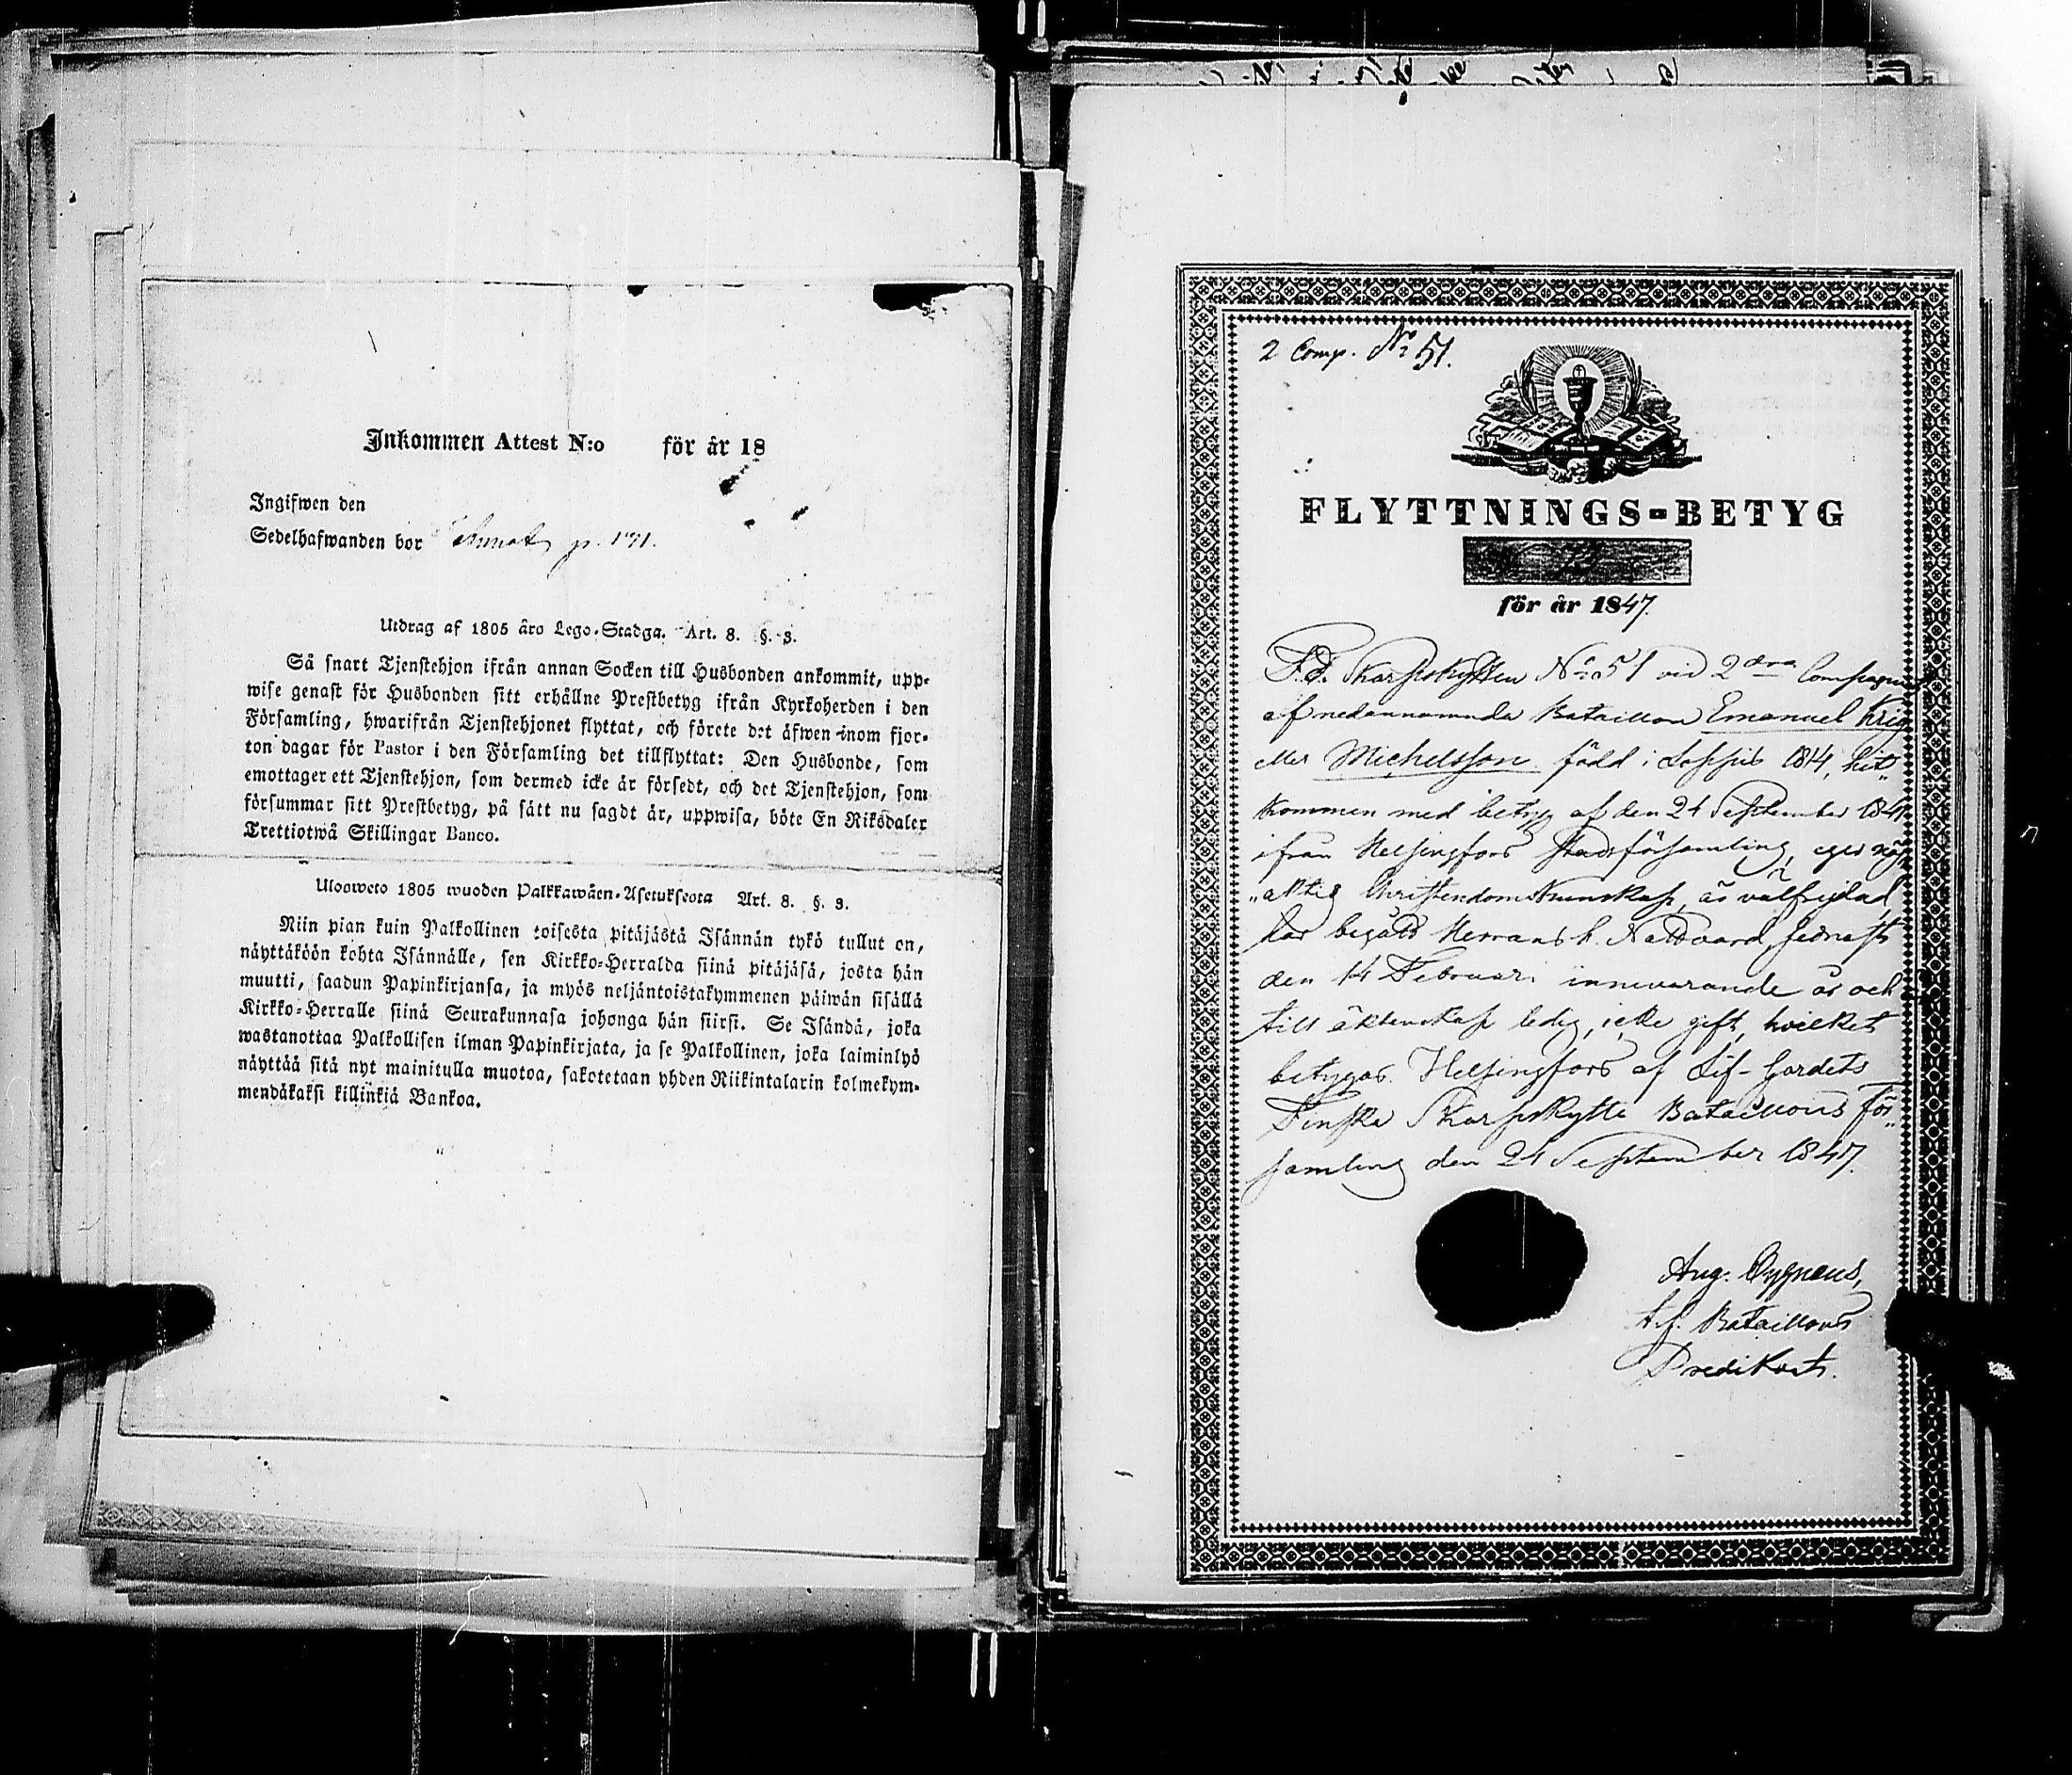 Inkommen Attest N:o för år 18
Ingifwen den
Sedelhafwanden bor p. 171.
Utdrag af 1805 åro Lego-Stadga. Art. 8. §. 3.
Så snart Tjenstehjon ifrån annan Socken till Husbonden ankommit, upp-
wise genast för Husbonden sitt erhållne Prestbetyg ifrån Kyrkoherden i den
Församling, hwarifrån Tjenstehjonet flyttat, och förete det äfwen inom fjor-
ton dagar för Pastor i den Församling det tillflyttat: Den Husbonde, som
emottager ett Tjenstehjon, som dermed icke är försedt, och det Tjenstehjon, som
försummar sitt Prestbetyg, på sätt nu sagdt är, uppwisa, böte En Riksdaler
Trettiotwå Skillingar Banco.
Ulosweto 1805 wuoden Palkkawäen-Asetuksesta Art. 8. §. 3.
Niin pian kuin Palkollinen toisesta pitäjästä Isännän tykö tullut on,
näyttäköön kohta Isännälle, sen Kirkko-Herralda siinä pitäjäsä, josta hän
muutti, saadun Papinkirjansa, ja myös neljäntoistakymmenen päiwän sisällä
Kirkko-Herralle siinä Seurakunnasa johonga hän siirsi. Se Isändä, joka
wastanottaa Palkollisen ilman Papinkirjata, ja se Palkollinen, joka laiminlyö
näyttää sitä nyt mainitulla muotoa, sakotetaan yhden Riikintalarin kolmekym-
mendäkaksi killinkiä Bankoa.
2 Comp. No 51.
FLYTTNINGS-BETYG
för år 1847.
F.d. Skarpskytten No 51 vid 2dra Compagniet
af nedannämnda Bataillon Emanuel Krig
eller Michelsson född i Loppis 1814, hit„
kommen med betyg af den 21 September 184
ifrån Helsingfors Stads församling, eger nöj
„aktig Christendomskunskap, är välfrejdad,
har begått Herrans h. Nattvard sednast
den 14 Februari innevarande år och
till äktenskap ledig, icke gift, hvilket
betygas. Helsingfors af Lif-Gardets
Finska Skarpskytte Bataillons För„
samling den 21 September 1847.
Aug. Cygnæus,
t.f. Bataillons
Predikant.